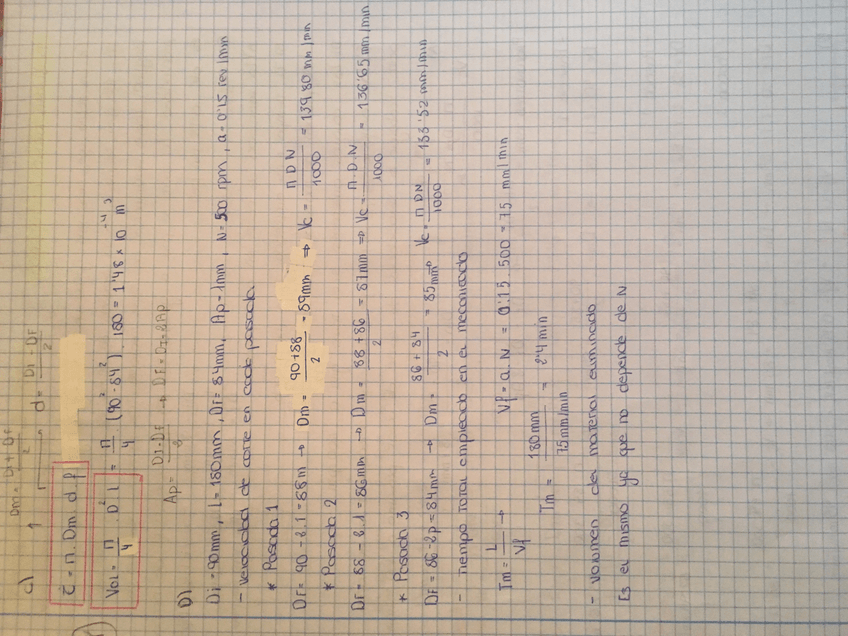 c)
Dm = (DI + DF)/2
Ċ = π . Dm . d . f → d = (DI - DF)/2
Vol = π/4 . D² l = π/4 (90² - 84²) . 180 = 1'48 x 10⁻⁴ m³
Ap = (DI - DF)/2 → DF = DI - 2Ap
D)
Di = 90mm, l = 180mm, DF = 84mm, Ap = 1mm, N = 500 rpm, a = 0'15 rev/mm
- Velocidad de corte en cada pasada
* Pasada 1
DF = 90 - 2.1 = 88m → Dm = (90+88)/2 = 89mm ⇒ Vc = π D N/1000 = 139'80 mm/min
* Pasada 2
DF = 88 - 2.1 = 86mm → Dm = (88+86)/2 = 87mm ⇒ Vc = π.D.N/1000 = 136'65 mm/min
* Pasada 3
DF = 86-2p = 84mm → Dm = (86+84)/2 = 85mm ⇒ Vc = π D N/1000 = 133'52 mm/min
- Tiempo total empleado en el mecanizado
Tm = L/Vf → Vf = a. N = 0'15 . 500 = 75 mm/min
Tm = 180mm/75mm/min = 2'4 min
- Volumen del material eliminado
Es el mismo ya que no depende de N